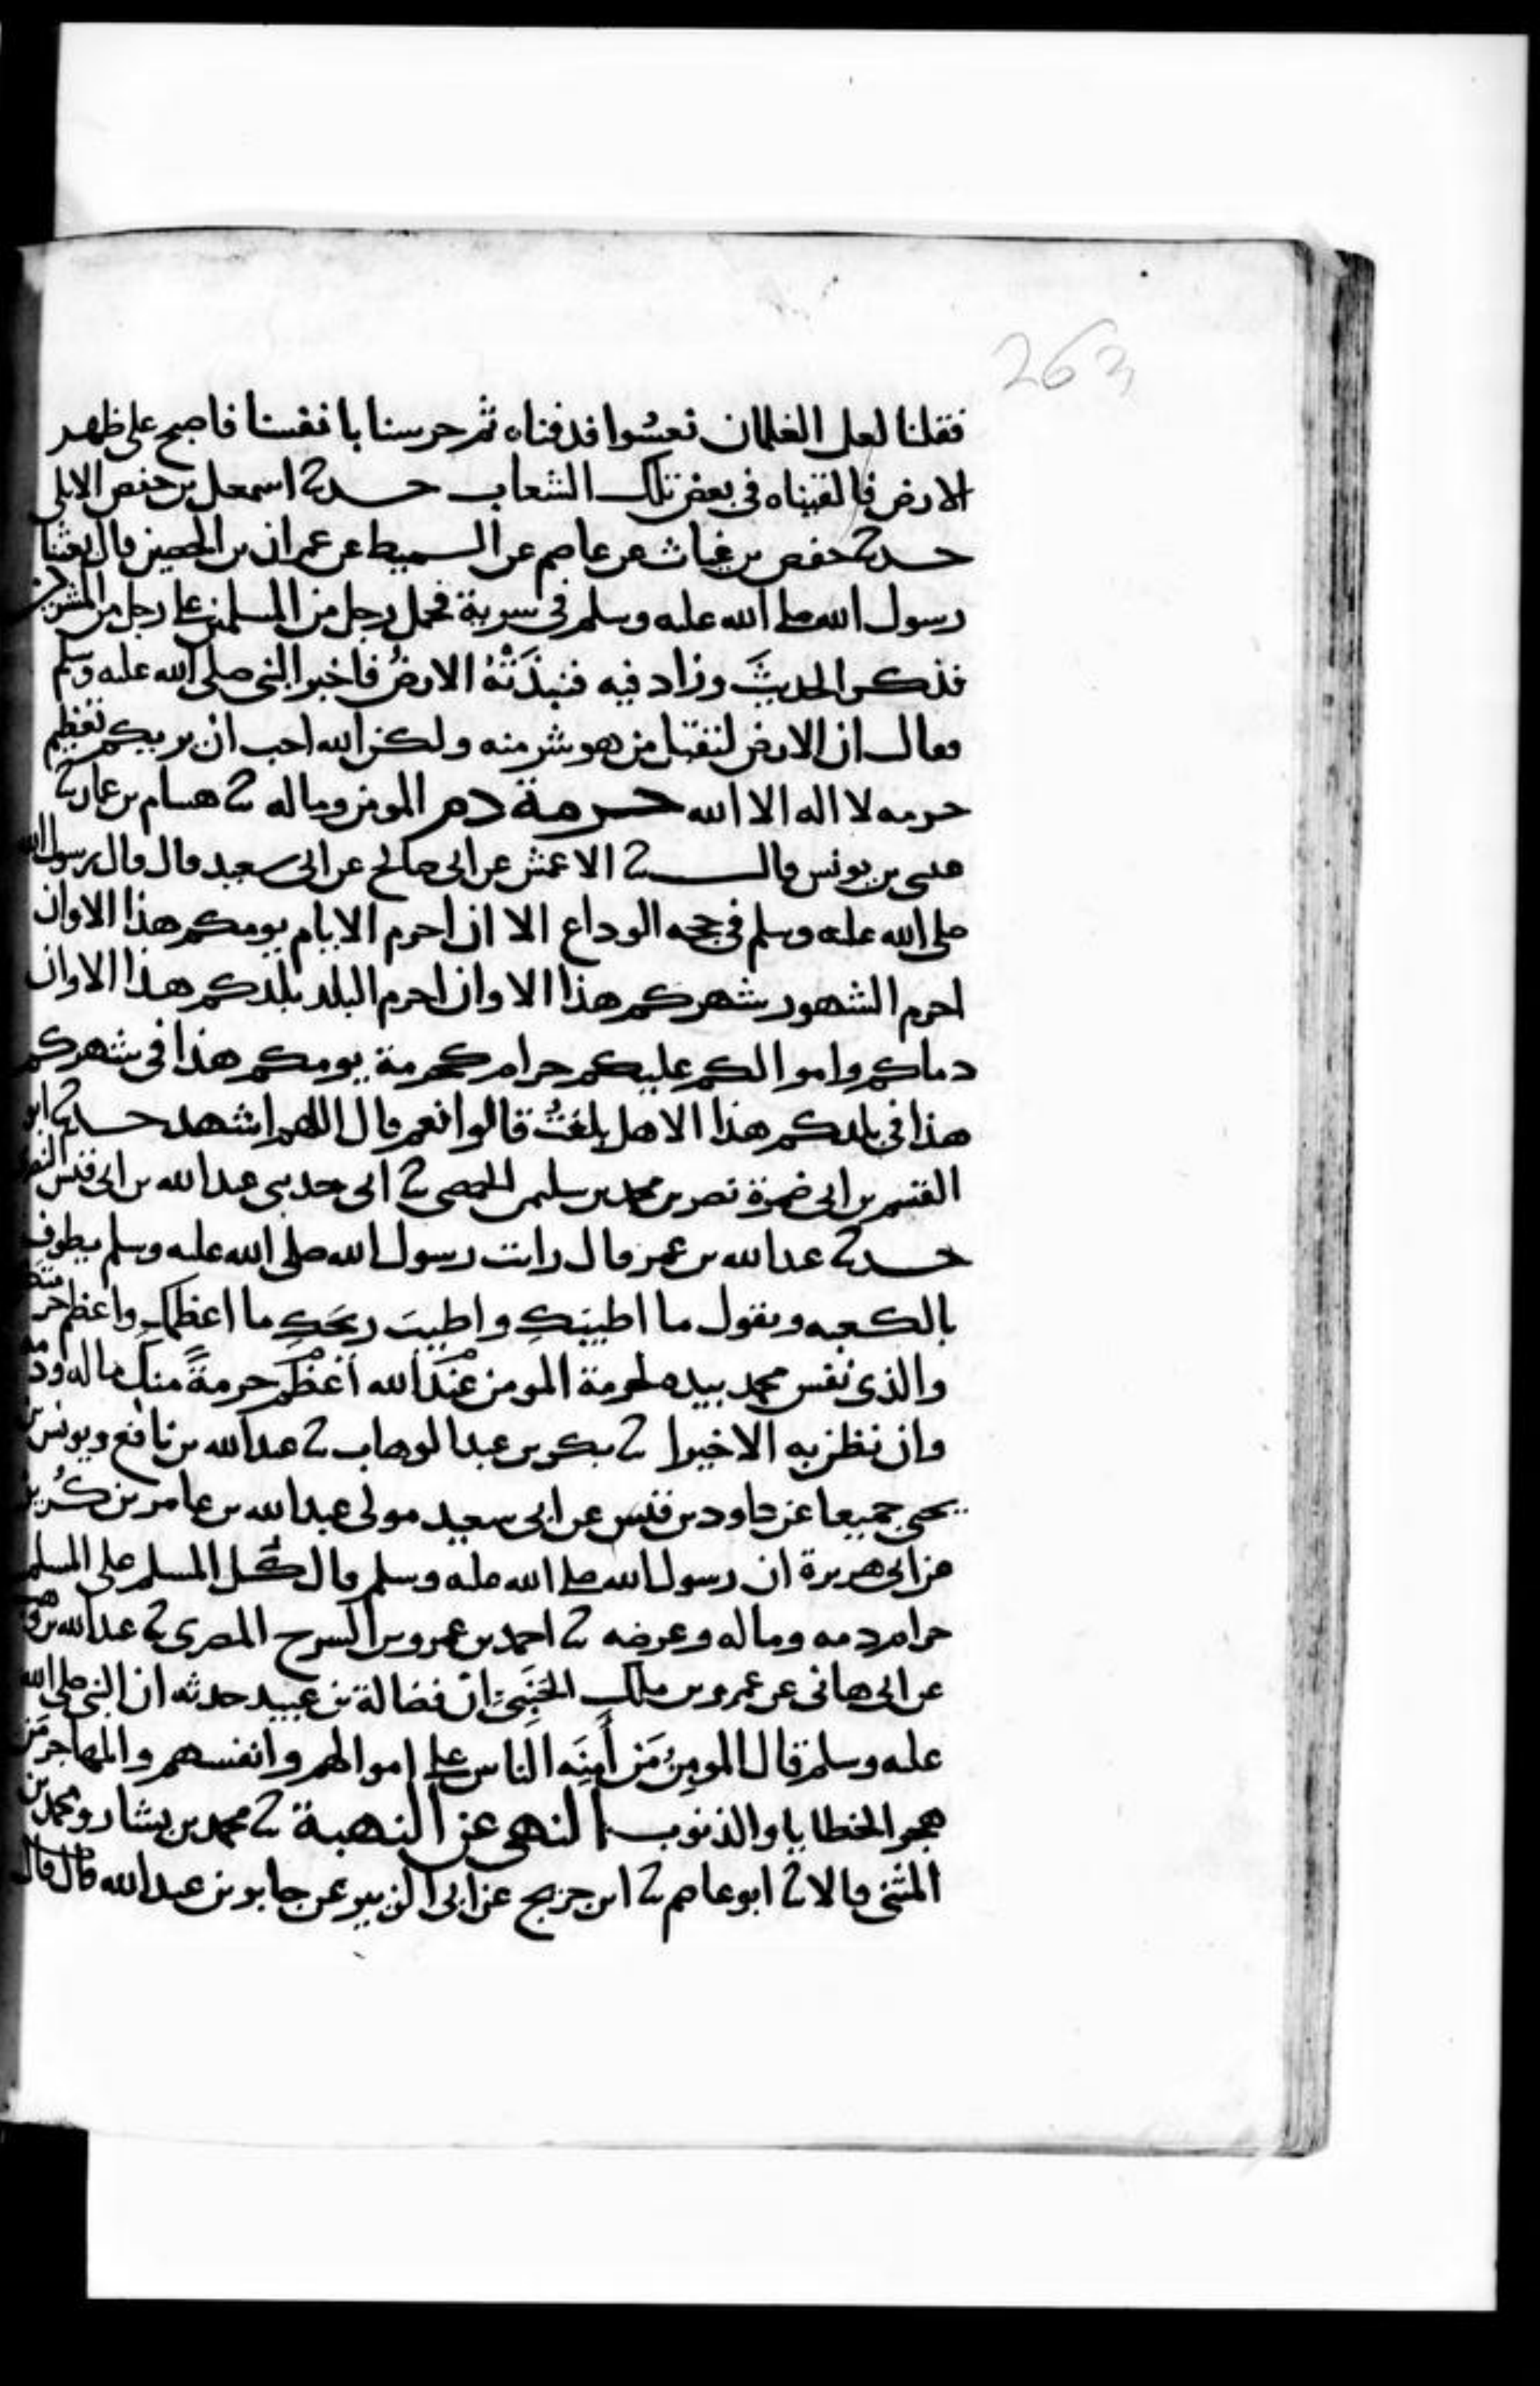 263
فقلنا لعل الغلمان نعسوا فدفناه ثم حرسنا بانفسنا فاصبح على ظهر
الارض فالقيناه فى بعض تلك الشعاب حدثنا اسمعيل بن حفص الابلى
حدثنا حفص بن غياث عن عاصم عن السميط عن عمران بن الحصين قال بعثنا
رسول الله صلى الله عليه وسلم فى سرية فحمل رجل من المسلمين على رجل من المشركين
فذكر الحديثَ وزاد فيه فنبذَتْهُ الارضُ فاخبر النبى صلى الله عليه وسلم
فقال ان الارض لتقبل من هو شر منه ولكن الله احب ان يريكم تعظيم
حرمه لا اله الا الله حرمة دم المومن وماله ثنا هشام بن عمار ثنا
عيسى بن يونس قال ثنا الاعمش عن ابى صالح عن ابى سعيد قال قال رسول الله
صلى الله عليه وسلم فى حجه الوداع الا ان احرم الايام يومكم هذا الا وان
احرم الشهور شهركم هذا الا وان احرم البلد بلدكم هذا الا وان
دماكم واموالكم عليكم حرام كحرمة يومكم هذا فى شهركم
هذا فى بلدكم هذا الا هل بلغتُ قالوا نعم قال اللهم اشهد حدثنا ابو
القسم بن ابى ضمرة نصر بن محمد بن سليمن الحمصى ثنا ابى حدثنى عبد الله بن ابى قيس النصرى
حدثنا عبد الله بن عمر قال رايت رسول الله صلى الله عليه وسلم يطوف
بالكعبه ويقول ما اطيبكِ واطيبَ ريحَكِ ما اعظمكِ واعظم حرمتك
والذى نفس محمد بيده لحرمة المومن عندَ الله أعظم حرمةً منكِ ماله ودمه
وان نظن به الا خيرا ثنا بكر بن عبد الوهاب ثنا عبد الله بن نافع ويونس بن
يحيى جميعا عن داود بن قيس عن ابى سعيد مولى عبد الله بن عامر بن كُريز
عن ابى هريرة ان رسول الله صلى الله عليه وسلم قال كُل المسلم على المسلم
حرام دمه وماله وعرضه ثنا احمد بن عمرو بن السرح المصرى ثنا عبد الله بن وهب
عن ابى هانى عن عمرو بن ملك الجَنبِىّ انّ فضالة بن عبيد حدثه ان النبى صلى الله
عليه وسلم قال المومِنُ مَن أَمِنَه الناس على اموالهم وانفسهم والمهاجر مَن
هجر الخطايا والذنوب النهى عن النهبة ثنا محمد بن بشار ومحمد بن
المثنى قالا ثنا ابو عاصم ثنا ابن جريج عن ابى الزبير عن جابر بن عبد الله قال قال